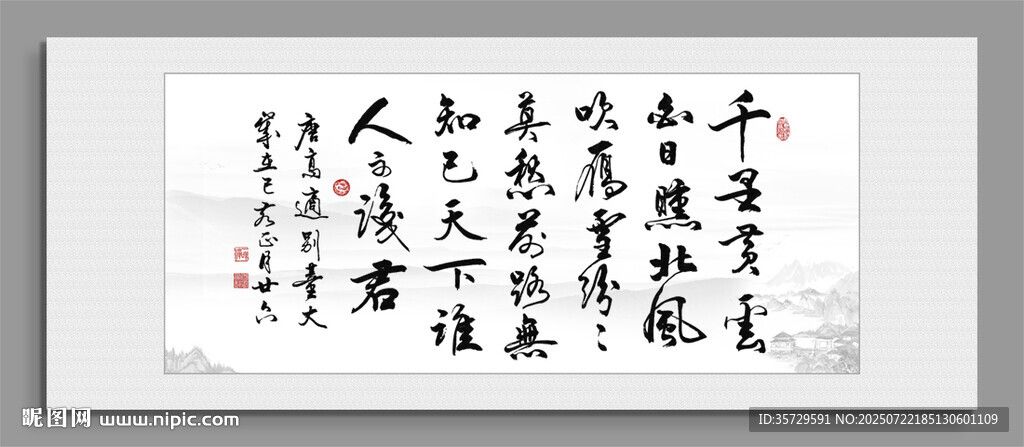 千里黄雲
白日曛北風
吹雁雪紛〻
莫愁前路無
知己天下誰
人不識君
唐高適別董大
歲在己亥正月廿六
昵图网 www.nipic.com
ID:35729591 NO:20250722185130601109